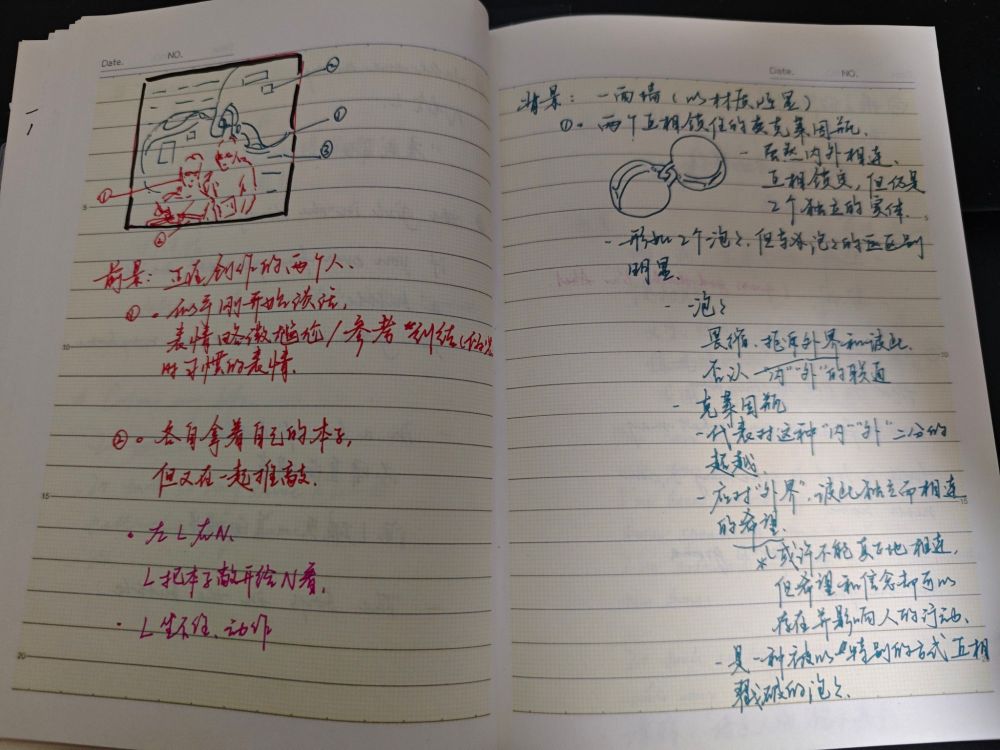 Date. NO.
②
①
③
①
②
前景：正在创作的两个人.
①·似乎刚开始谈话,
表情略微尴尬/参考“刘结(
时习惯的表情.
②·各自拿着自己的本子,
但又在一起推敲.
·左L右N、
L把本子敞开给N看,
·L坐不住、动作
5
10
15
20
Date. NO.
背景：一面墙(以材质
①·两个互相锁住的类克莱因瓶.
-虽然内外相连、
互相锁定,但仍是
2个独立的实体.
-形如2个泡泡,但与泡泡的区别
明显.
-泡泡
畏缩、拒斥外界和彼此.
否认“内”“外”的联通
-克莱因瓶
-代表对这种“内”“外”二分的
超越.
-应对“外界”、彼此独立而相连
的希望.
*或许不能真正地相连,
但希望和信念却可以
存在并影响人的行动.
-是一种被以特别的方式互相
戳破的泡泡.
5
15